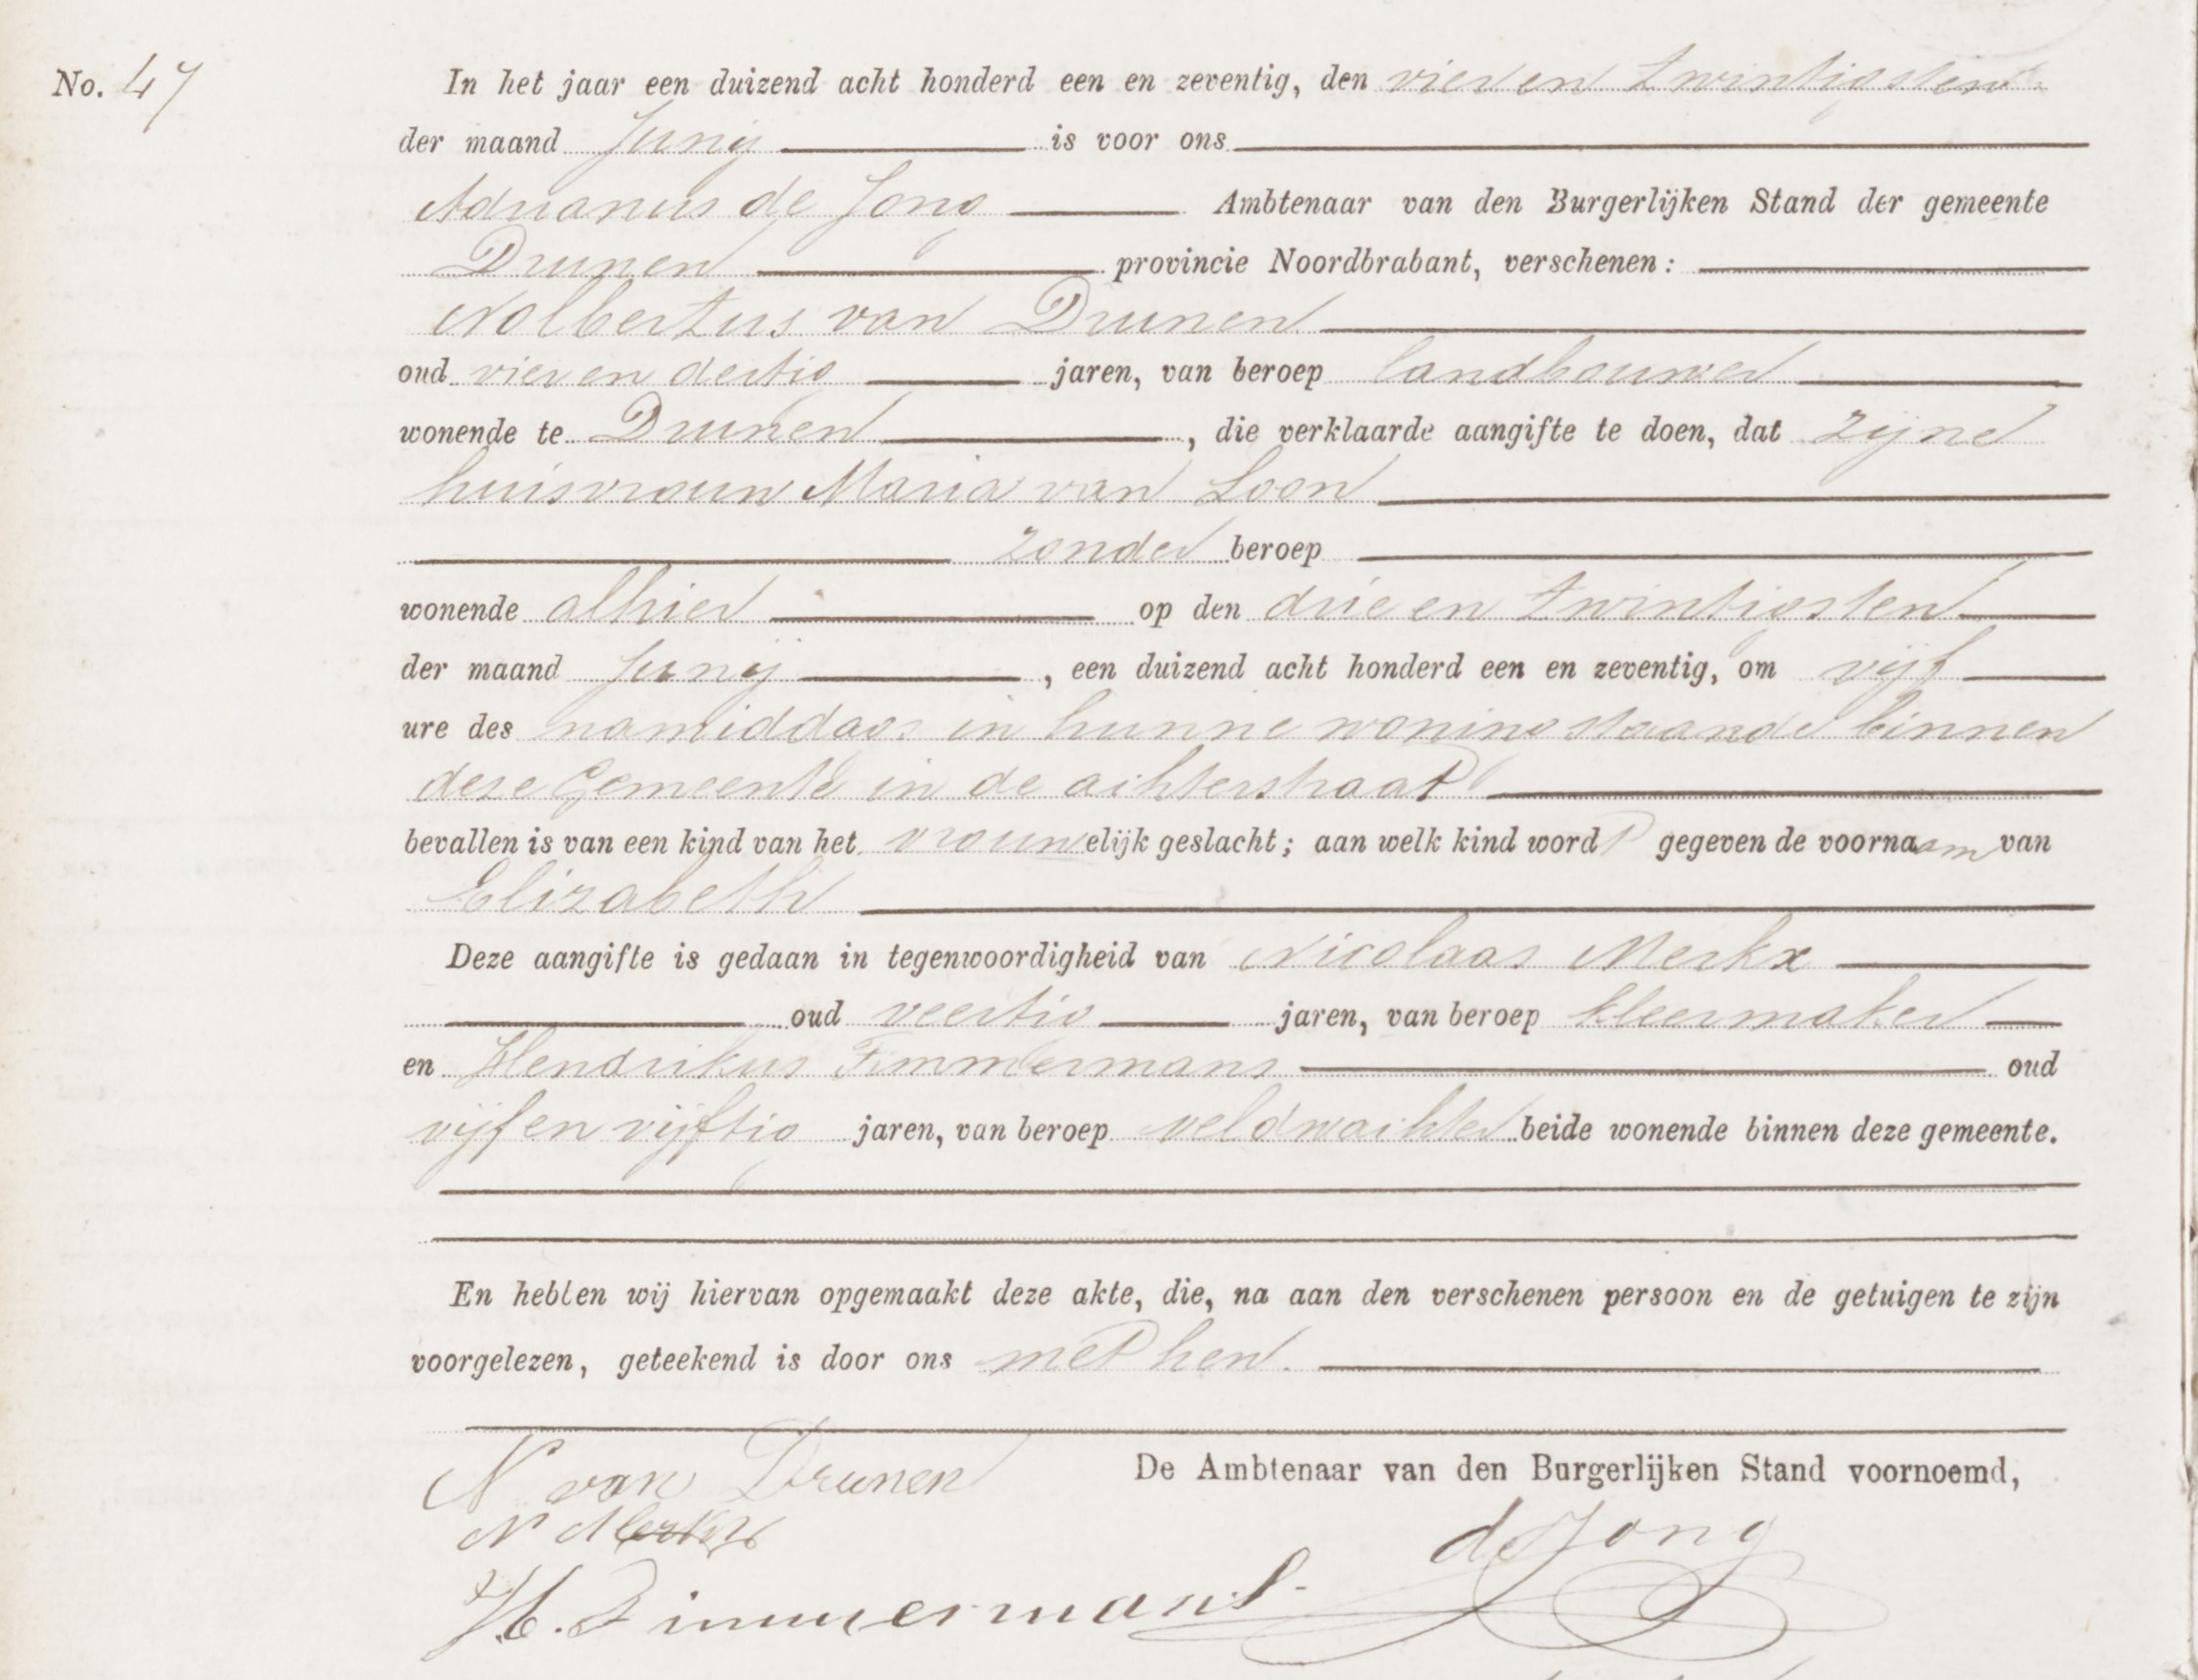 No. 47
In het jaar een duizend acht honderd een en zeventig, den vier en twintigsten
der maand Junij is voor ons
Adrianus de Jong Ambtenaar van den Burgerlijken Stand der gemeente
Drunen provincie Noordbrabant, verschenen:
Nolbertus van Drunen
oud vier en dertig jaren, van beroep landbouwer
wonende te Drunen, die verklaarde aangifte te doen, dat zijne
huisvrouw Maria van Loon
zonder beroep
wonende alhier op den drie en twintigsten
der maand Junij, een duizend acht honderd een en zeventig, om vijf
ure des namiddags in hunne woning staande binnen
deze Gemeente in de achterstraat
bevallen is van een kind van het vrouwelijk geslacht; aan welk kind wordt gegeven de voornaam van
Elizabeth
Deze aangifte is gedaan in tegenwoordigheid van Nicolaas Merkx
oud veertig jaren, van beroep kleermaker
en Hendrikus Timmermans oud
vijf en vijftig jaren, van beroep veldwachter beide wonende binnen deze gemeente.
En hebben wij hiervan opgemaakt deze akte, die, na aan den verschenen persoon en de getuigen te zijn
voorgelezen, geteekend is door ons met hen.
N van Drunen
De Ambtenaar van den Burgerlijken Stand voornoemd,
N Merkx
dJong
H. Timmermans